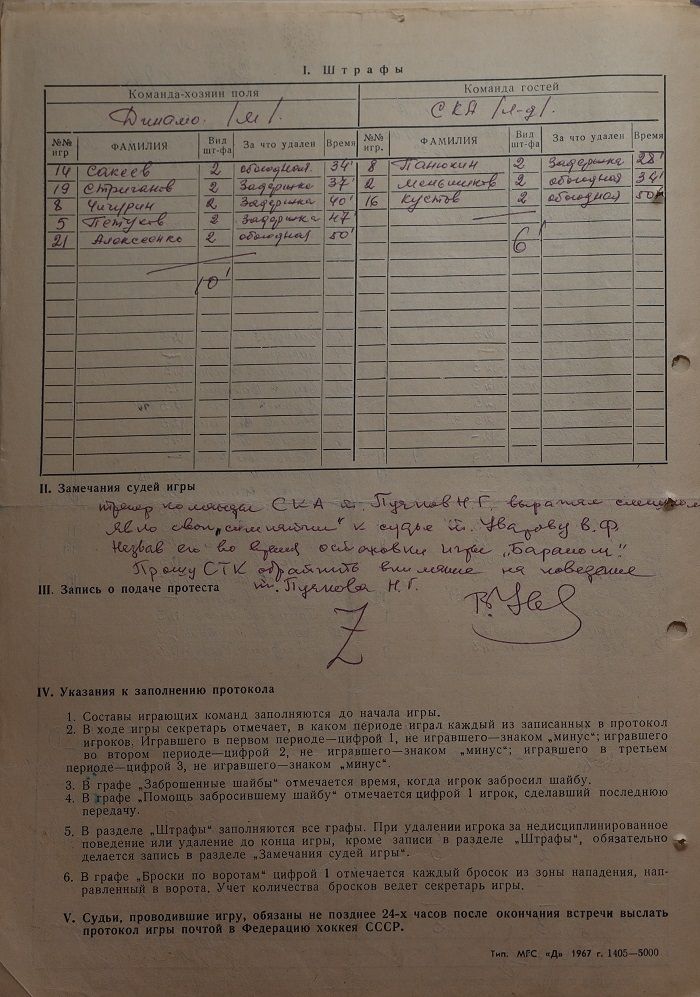 I. Штрафы
Команда-хозяин поля Команда гостей
Динамо. /М/. СКА /Л-д/.
№№ игр ФАМИЛИЯ Вид шт-фа За что удален Время №№ игр. ФАМИЛИЯ Вид шт-фа За что удален Время
14 Сакеев 2 обоюдная. 34' 8 Панюхин 2 Задержка 28'
19 Стриганов 2 Задержка 37' 2 Меньшиков 2 обоюдная 34'
8 Чичурин 2 Задержка 40' 16 Кустов 2 обоюдная 50'
5 Петухов 2 Задержка 47'
21 Алексеенко 2 обоюдная 50' 6'
10'
II. Замечания судей игры
тренер команды СКА т. Пучков Н.Г. выражал слишком
явно свои „симпатии" к судье т. Уварову В.Ф.
Назвав его во время остановки игры „Бараном".
Прошу СТК обратить внимание на поведение
III. Запись о подаче протеста т. Пучкова Н.Г.
Z
IV. Указания к заполнению протокола
1. Составы играющих команд заполняются до начала игры.
2. В ходе игры секретарь отмечает, в каком периоде играл каждый из записанных в протокол
игроков. Игравшего в первом периоде—цифрой 1, не игравшего—знаком „минус"; игравшего
во втором периоде—цифрой 2, не игравшего—знаком „минус"; игравшего в третьем
периоде—цифрой 3, не игравшего—знаком „минус".
3. В графе „Заброшенные шайбы" отмечается время, когда игрок забросил шайбу.
4. В графе „Помощь забросившему шайбу" отмечается цифрой 1 игрок, сделавший последнюю
передачу.
5. В разделе „Штрафы" заполняются все графы. При удалении игрока за недисциплинированное
поведение или удаление до конца игры, кроме записи в разделе „Штрафы", обязательно
делается запись в разделе „Замечания судей игры".
6. В графе „Броски по воротам" цифрой 1 отмечается каждый бросок из зоны нападения, нап-
равленный в ворота. Учет количества бросков ведет секретарь игры.
V. Судьи, проводившие игру, обязаны не позднее 24-х часов после окончания встречи выслать
протокол игры почтой в Федерацию хоккея СССР.
Тип. МГС. «Д» 1967 г. 1405—5000